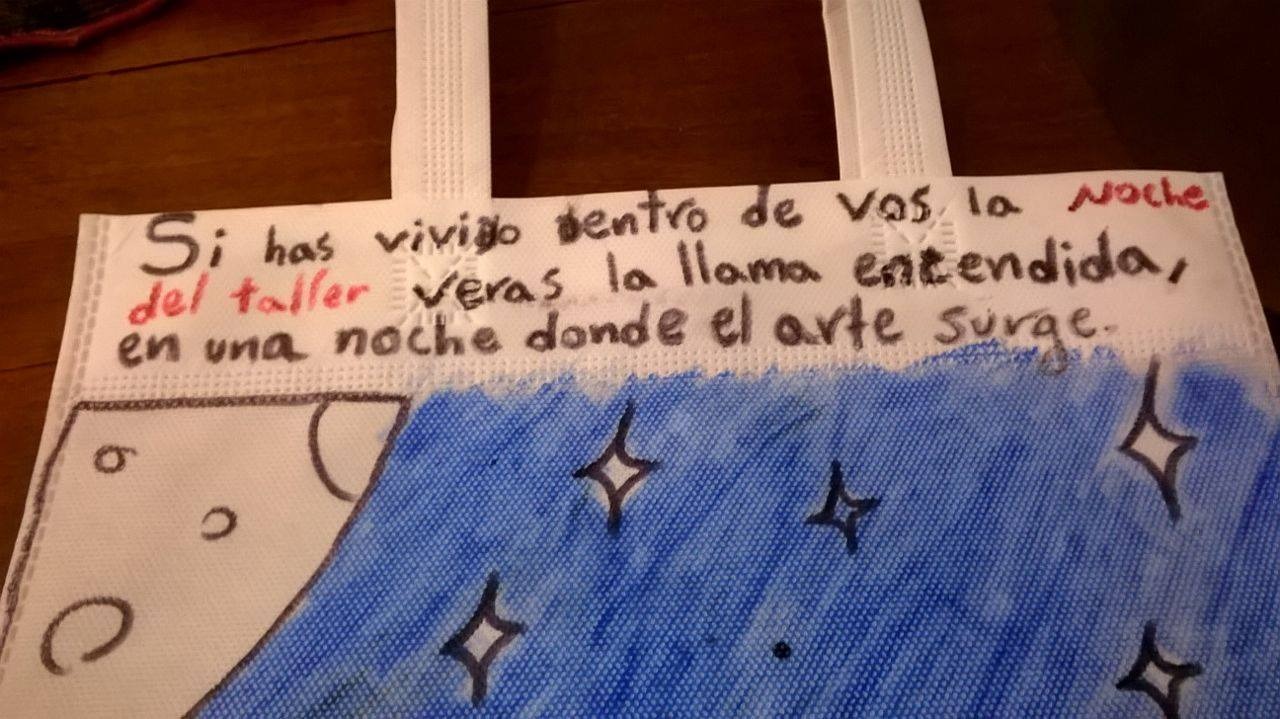 Si has vivido dentro de vos la Noche
del taller veras la llama entendida,
en una noche donde el arte surge.